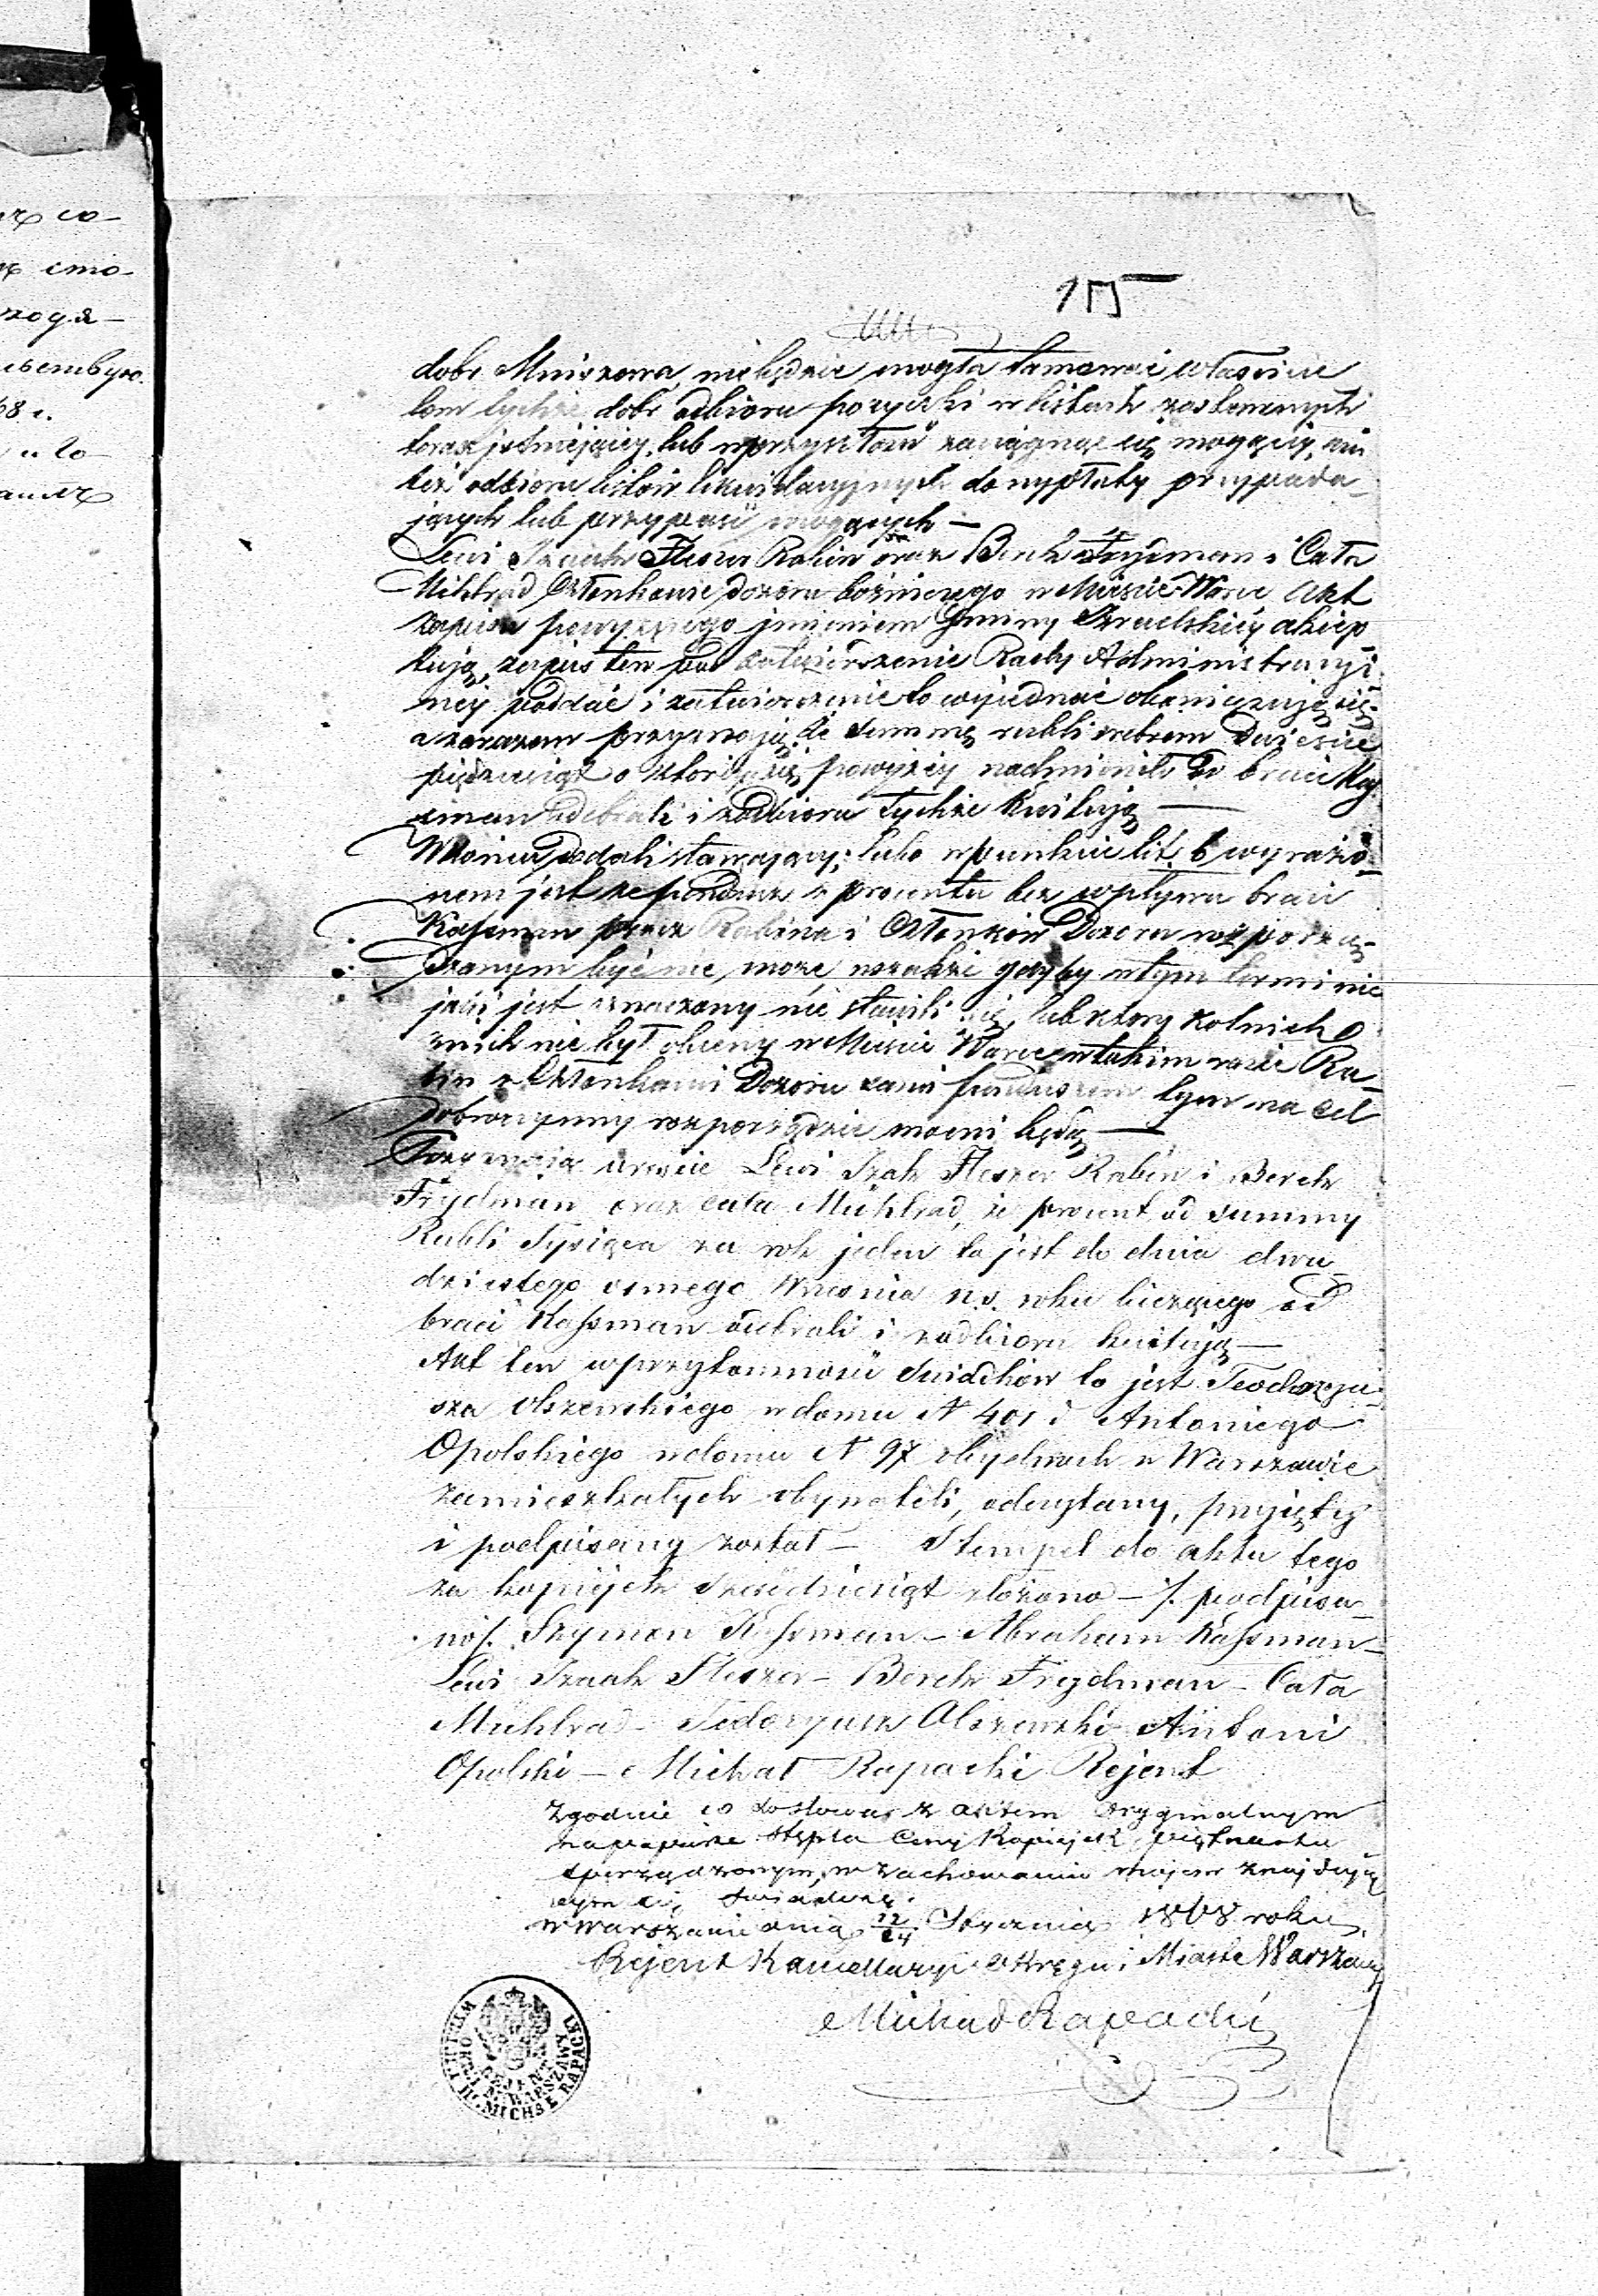 155
dobr Mniszewa, nie będzie mogła tamować właścicie
lom tychże dobr odbioru pożyczki w listach zastawnych
teraz istniejącey, lub w przyszłości zaciągnąć się mogącéj, ani
też odbioru listów likwidacyjnych do wypłaty przypada-
jących lub przypaść mogących —
Lewi Izaak Fleszer Rabin oraz Berek Frydman i Cała
Mühlrad Członkowie dozoru bóżniczego w Mieście Warce Akt
zapisu powyższego imieniem Gminy Izraelskiéj akcep
tują, zapis ten pod zatwierdzenie Rady Administracyj
néj poddać i zatwierdzenie to wyjednać obowiązują się
a zarazem przyznają, że summę rubli srebrem dwieście
pięćdziesiąt o któréj się powyżéj nadmieniło od braci Kas
sman odebrali i z odbioru tychże kwitują —
W końcu dodali stawający; lubo w punkcie lit. b wyrażo-
nem jest że fundusz z procentu bez wpływu braci
Kassman przez Rabina i Członków Dozoru rozporzą-
dzanym być nie może, wszakże gdyby w tym terminie
jaki jest oznaczony nie stawili się, lub który kolwiek
z nich nie był obecny w Mieście Warce w takim razie Ra-
bin z Członkami Dozoru sami funduszem tym na cel
dobroczynny rozporządzić mocni będą —
Przyznają wreszcie Lewi Izak Fleszer Rabin i Berek
Frydman oraz Cała Mühlrad, że procent od summy
Rubli Tysiąca za rok jeden to jest do dnia dwu
dziestego osmego Wrzesnia n.s. roku bieżącego od
braci Kassman odebrali i z odbioru kwitują —
Akt ten w przytomności Swiadków to jest Teodozyu
sza Olszewskiego w domu N 401 i Antoniego
Opolskiego w domu N 97 obydwóch w Warszawie
zamieszkałych obywateli, odczytany, przyjęty
i podpisany został — Stempel do aktu tego
za kopiéjek sześćdziesiąt złożono — /. podpisa-
no/. Szymon Kassman — Abraham Kassman —
Lewi Izaak Fleszer — Berek Frydman — Cała
Mühlrad — Teodozyusz Olszewski — Antoni
Opolski — Michał Rapacki Rejent
Zgodnie co do słowa z aktem orygynalnym
na papierze stępla ceny kopiejek piętnastu
sporządzonym, w zachowaniu mojem znajdują
cym się świadczę.
w Warszawie dnia 12/24 Stycznia 1868 roku.
Rejent Kancellaryi Okręgu i Miasta Warszawy
Michał Rapacki
REJENT OKRĘGU I M. WARSZAWY
MICHAŁ RAPACKI